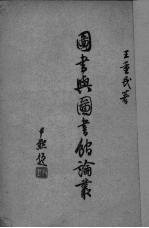 王重民著
圖書與圖書館論叢
尹默題